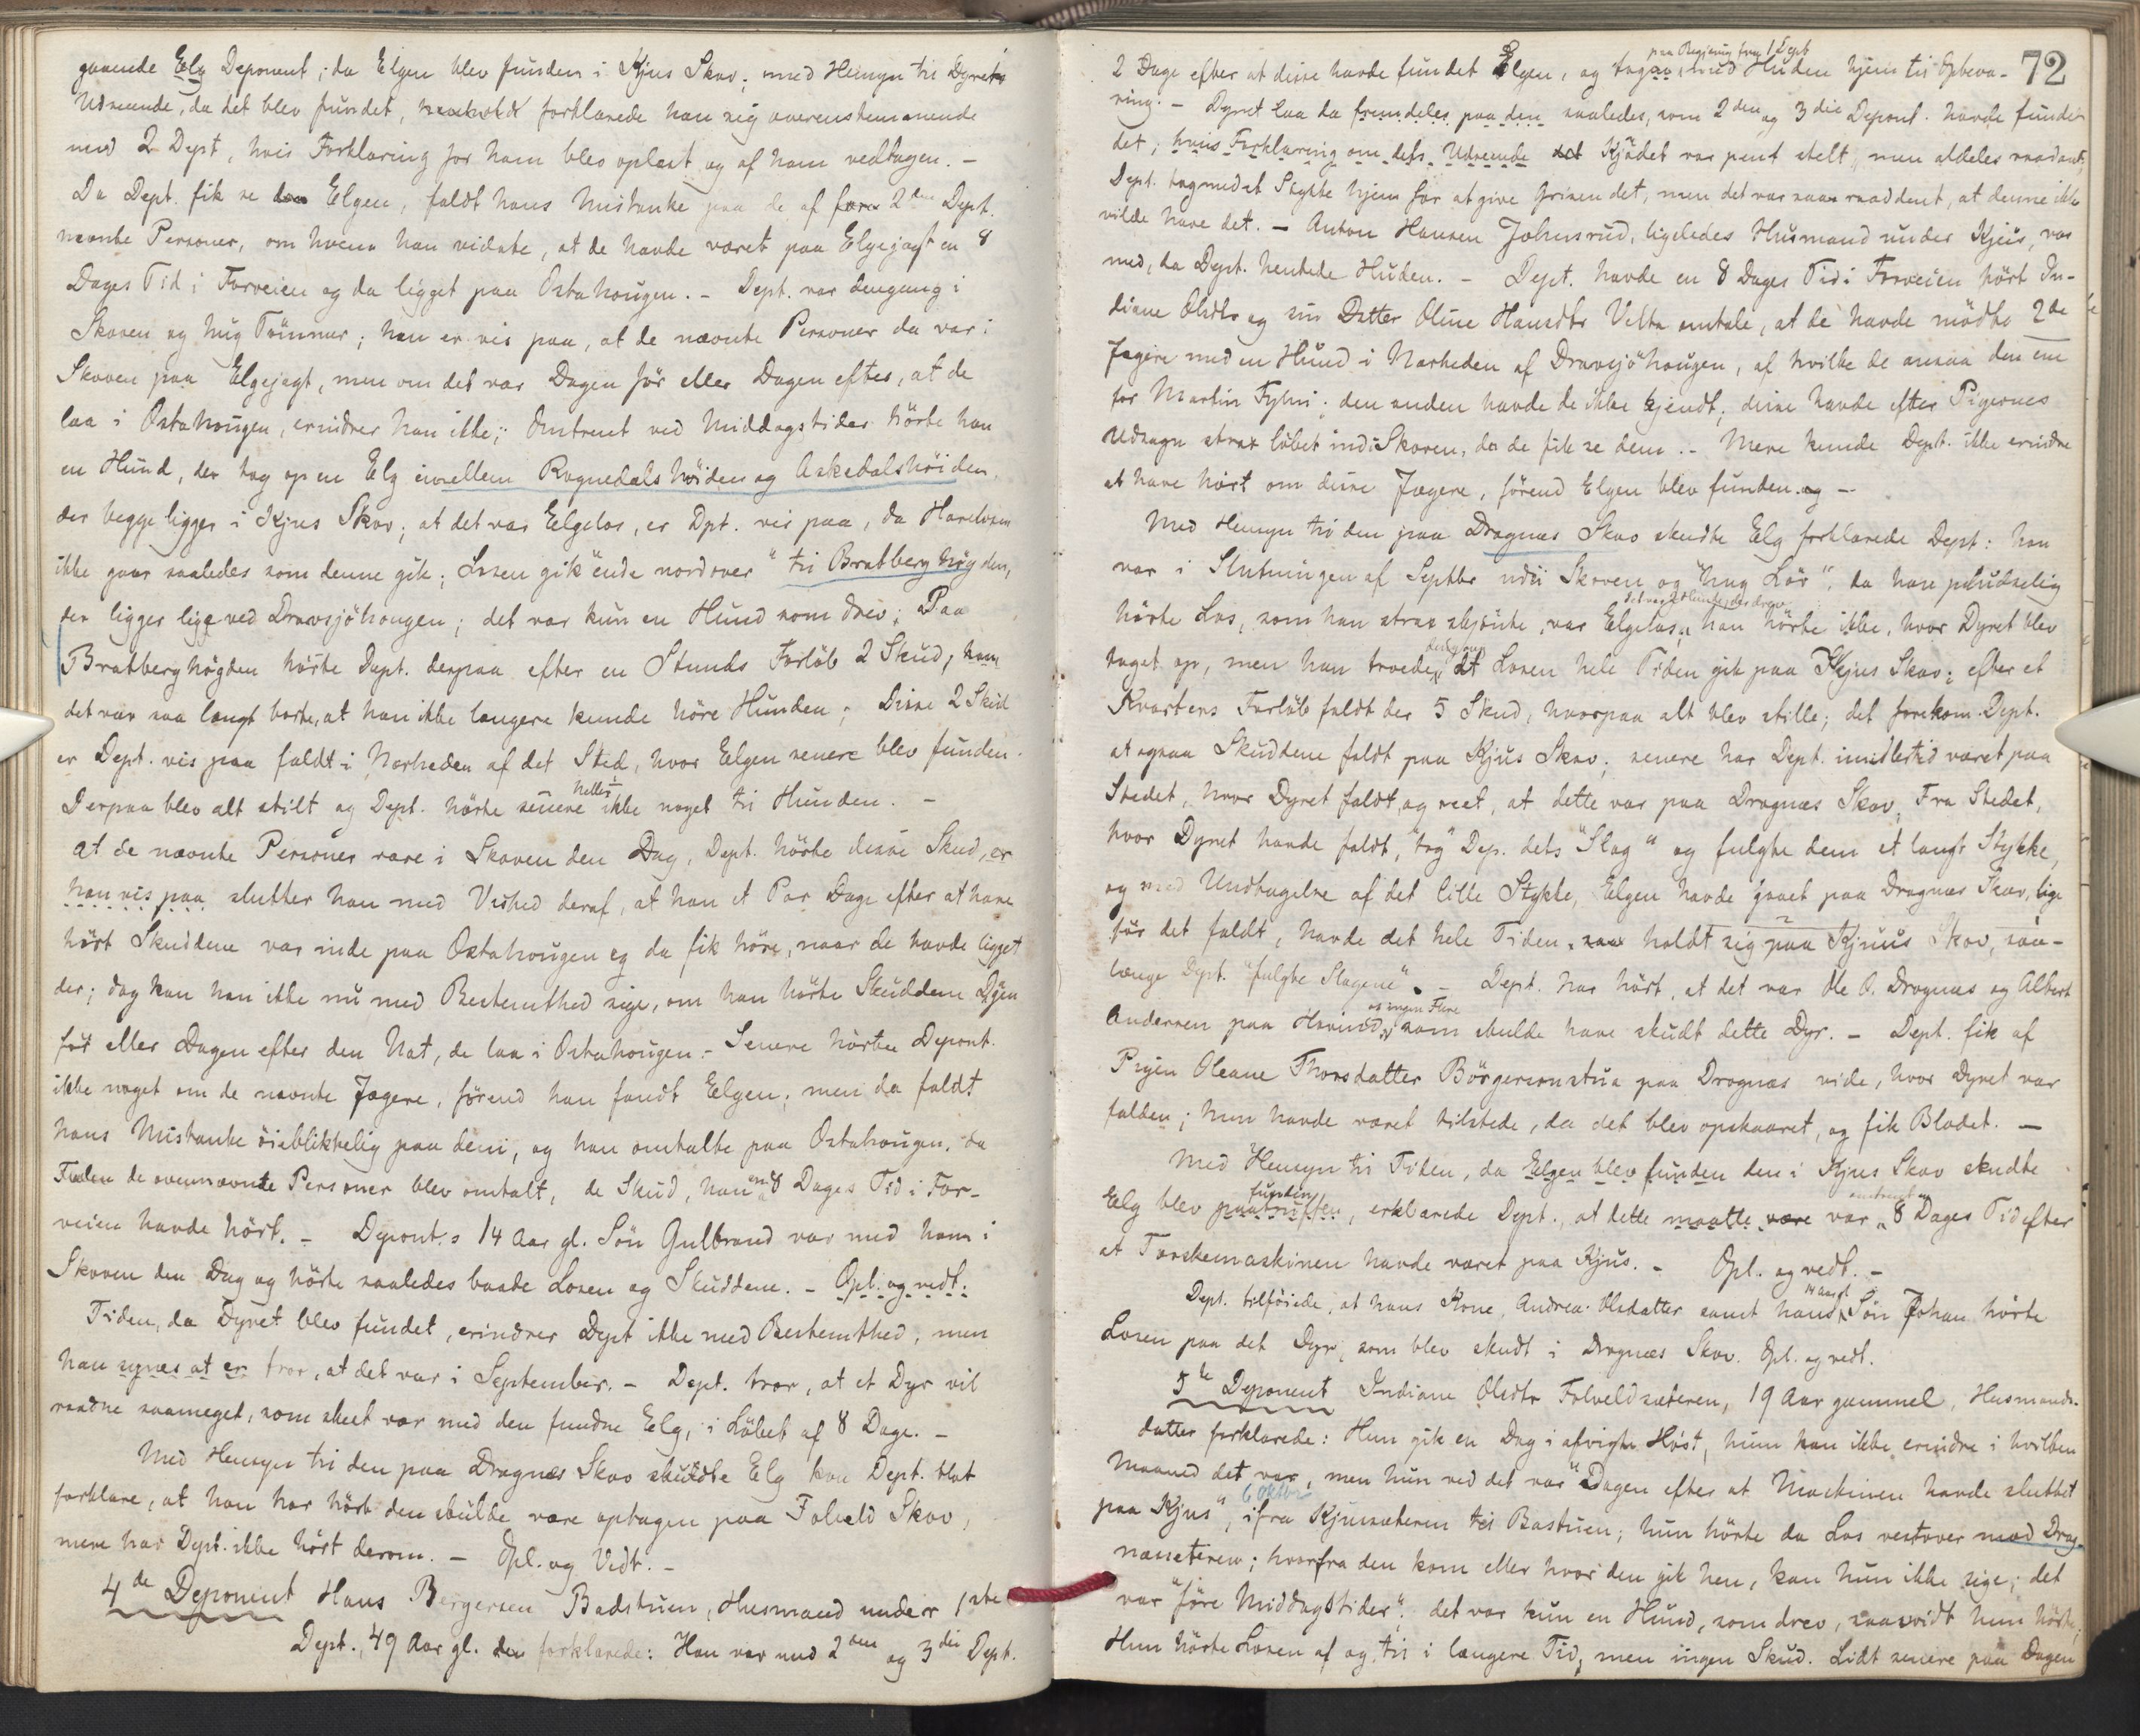 gaaende Elg Deponent; da Elgen blev funden i Kjus Skov; med Hensyn til Dyrets
Udseende, da det blev fundet, forklarede han sig overensstemmende
med 2 Dept, hvis Forklaring for ham blev oplæst og af ham vedtagen. –
Da Dept. fik se den Elgen, faldt hans Mistanke paa de af foren 2den Dept.
nævnte Personer, om hvem han vidste, at de havde været paa Elgejagt en 8
Dages Tid i Forveien og da ligget paa Ostahougen. – Dept. var dengang i
Skoven og hug Tömmer; han er vis paa, at de nævnte Personer da var i
Skoven paa Elgejagt, men om det var Dagen för eller Dagen efter, at de
laa i Ostahougen, erindrer han ikke; Omtrent ved Middagstider hörte han
en Hund, der tog op en Elg imellem Rognedalshöiden og Askedalshöiden,
der begge ligger i Kjus Skov; at det var Elgelos, er Dpt. vis paa, da Hareloser
ikke gaar saaledes som denne gik; Losen gik "ende nordover" til Bratberghögden,
der ligger lige ved Dravsjöhougen; det var kun en Hund som drev; Paa
Bratberghögden hörte Dept. derpaa efter en Stunds Forlöb 2 Skud, han
det var saa langt borte, at han ikke længere kunde höre Hunden; Disse 2 Skud
er Dept. vis paa faldt i Nærheden af det Sted, hvor Elgen senere blev funden.
Derpaa blev alt stilt og Dept. hörte senere heller ikke noget til Hunden. –
At de nævnte Personer vare i Skoven den Dag, Dept. hörte disse Skud, er
han vis paa slutter han med Vished deraf, at han et Par Dage efter at have
hört Skuddene var inde paa Ostahougen og da fik höre, naar de havde ligget
der; dog kan han ikke nu med Bestemthed sige, om han hörte Skuddene Dagen
för eller Dagen efter den Nat, de laa i Ostahougen. – Senere hörte Deponent.
ikke noget om de nævnte Jægere, förend han fandt Elgen; men da faldt
hans Mistanke öieblikkelig paa dem, og han omtalte paa Ostahougen, da
Funden de ovennævnte Personer blev omtalt, de Skud, han en 8 Dages Tid i For-
veien havde hört. – Deponts 14 Aar gl. Sön Gulbrand var med ham i
Skoven den Dag og hörte saaledes baade Losen og Skuddene. – Opl. og vedt.
Tiden, da Dyret blev fundet, erindrer Dept ikke med Bestemthed, men
han synes at er tror, at det var i September. – Dept. tror, at et Dyr vil
raadne saameget, som skeet var med den fundne Elg, i Löbet af 8 Dage. –
Med Hensyn til den paa Dragnæs Skov skudte Elg kan Dept. blot
forklare, at han har hört den skulde være optagen paa Folveld Skov,
mere har Dept. ikke hört derom. – Opl. og Vedt. –
4de Deponent Hans Bergersen Badstuen, Husmand under 1ste
Dept., 49 Aar gl. den forklarede: Han var med 2den og 3die Dept.
72
paa Begjæring fra 1 Dept
2 Dage efter at disse havde fundet Elgen, og tog med Huden hjem til Opbeva-
ring. – Dyret laa da fremdeles paa den saaledes, som 2den og 3die Depont. havde funden
det, hvis Forklaring om dets Udseende det Kjödet var pent stelt, men aldeles raaddent,
Dept. tog med et Stykke hjem for at give Grisen det, men det var saa raaddent, at denne ikke
vilde have det. – Anton Hansen Johnsrud, ligeledes Husmand under Kjus, var
med, da Dept. hentede Huden. – Dept. havde en 8 Dages Tid i Forveien hört In-
diane Olsdtr og sin Datter Oline Hansdtr Velta omtale, at de havde mödte 2de
Jægere med en Hund i Nærheden af Dravsjöhougen, af hvilke de ansaa den ene
for Martin Fylni; den anden havde de ikke kjendt; disse havde efter Pigernes
Udsagn strax löbet ind i Skoven, da de fik se dem. – Mere kunde Dept. ikke erindre
at have hört om disse Jægere, förend Elgen blev funden. og –
Med Hensyn til den paa Dragnæs Skov skudte Elg forklarede Dept: han
var i Slutningen af Septbr ude i Skoven og "hug Löv", da han pludselig
det var 2 Hunde, der drev
hörte Los, som han strax skjönte, var Elgelos, han hörte ikke, hvor Dyret blev
taget op, men han troede, at Losen hele Tiden gik paa Kjus Skov; efter et
Kvarters Forlöb faldt der 5 Skud, hvorpaa alt blev stille; det forekom Dept.
at ogsaa Skuddene faldt paa Kjus Skov; senere har Dept. imidlertid været paa
Stedet, hvor Dyret faldt, og seet, at dette var paa Dragnæs Skov, Fra Stedet,
hvor Dyret havde faldt, "tog" Dep. dets "Slag" og fulgte dem et langt Stykke,
og med Undtagelse af det lille Stykke, Elgen havde gaaet paa Dragnæs Skov, lige
för det faldt, havde det hele Tiden holdt sig paa Kjuus Skov, saa-
længe Dept. "fulgte Slagene". – Dept. har hört, at det var Ole O. Dragnæs og Albert
og ingen Flere
Andersen paa Hvinnd, som skulde have skudt dette Dyr. – Dept. fik af
Pigen Oleane Thorsdatter Börgersonstua paa Dragnæs vide, hvor Dyret var
falden; hun havde været tilstede, da det blev opskaaret, og fik Blodet. –
Med Hensyn til Tiden, da Elgen blev funden den i Kjus Skov skudte
Elg blev paatruffen funden, erklærede Dept., at dette maatte være var omtrent en 8 Dages Tid efter
at Tærskemaskinen havde været paa Kjus. – Opl. og vedt. –
Dept. tilföiede, at hans Kone, Andrea Olsdatter samt hans 14 aar gl Sön Johan hörte
Losen paa det Dyr, som blev skudt i Dragnæs Skov. Opl. og vedt.
5te Deponent Indiane Olsdtr Folveldsæteren, 19 Aar gammel, Husmands-
datter forklarede: Hun gik en Dag i afvigte Höst, hun kan ikke erindre i hvilken
Maaned det var, men hun ved det var "Dagen efter at Maskinen havde sluttet
6 Oktbr
paa Kjus", ifra Kjussæteren til Bastuen; hun hörte da Los vestover mod Drag-
næsseteren; hvorfra den kom eller hvor den gik hen, kan hun ikke sige; det
var "före Middagstider". det var kun en Hund, som drev, saavidt hun hörte,
Hun hörte Losen af og til i længere Tid, men ingen Skud. Lidt senere paa Dagen